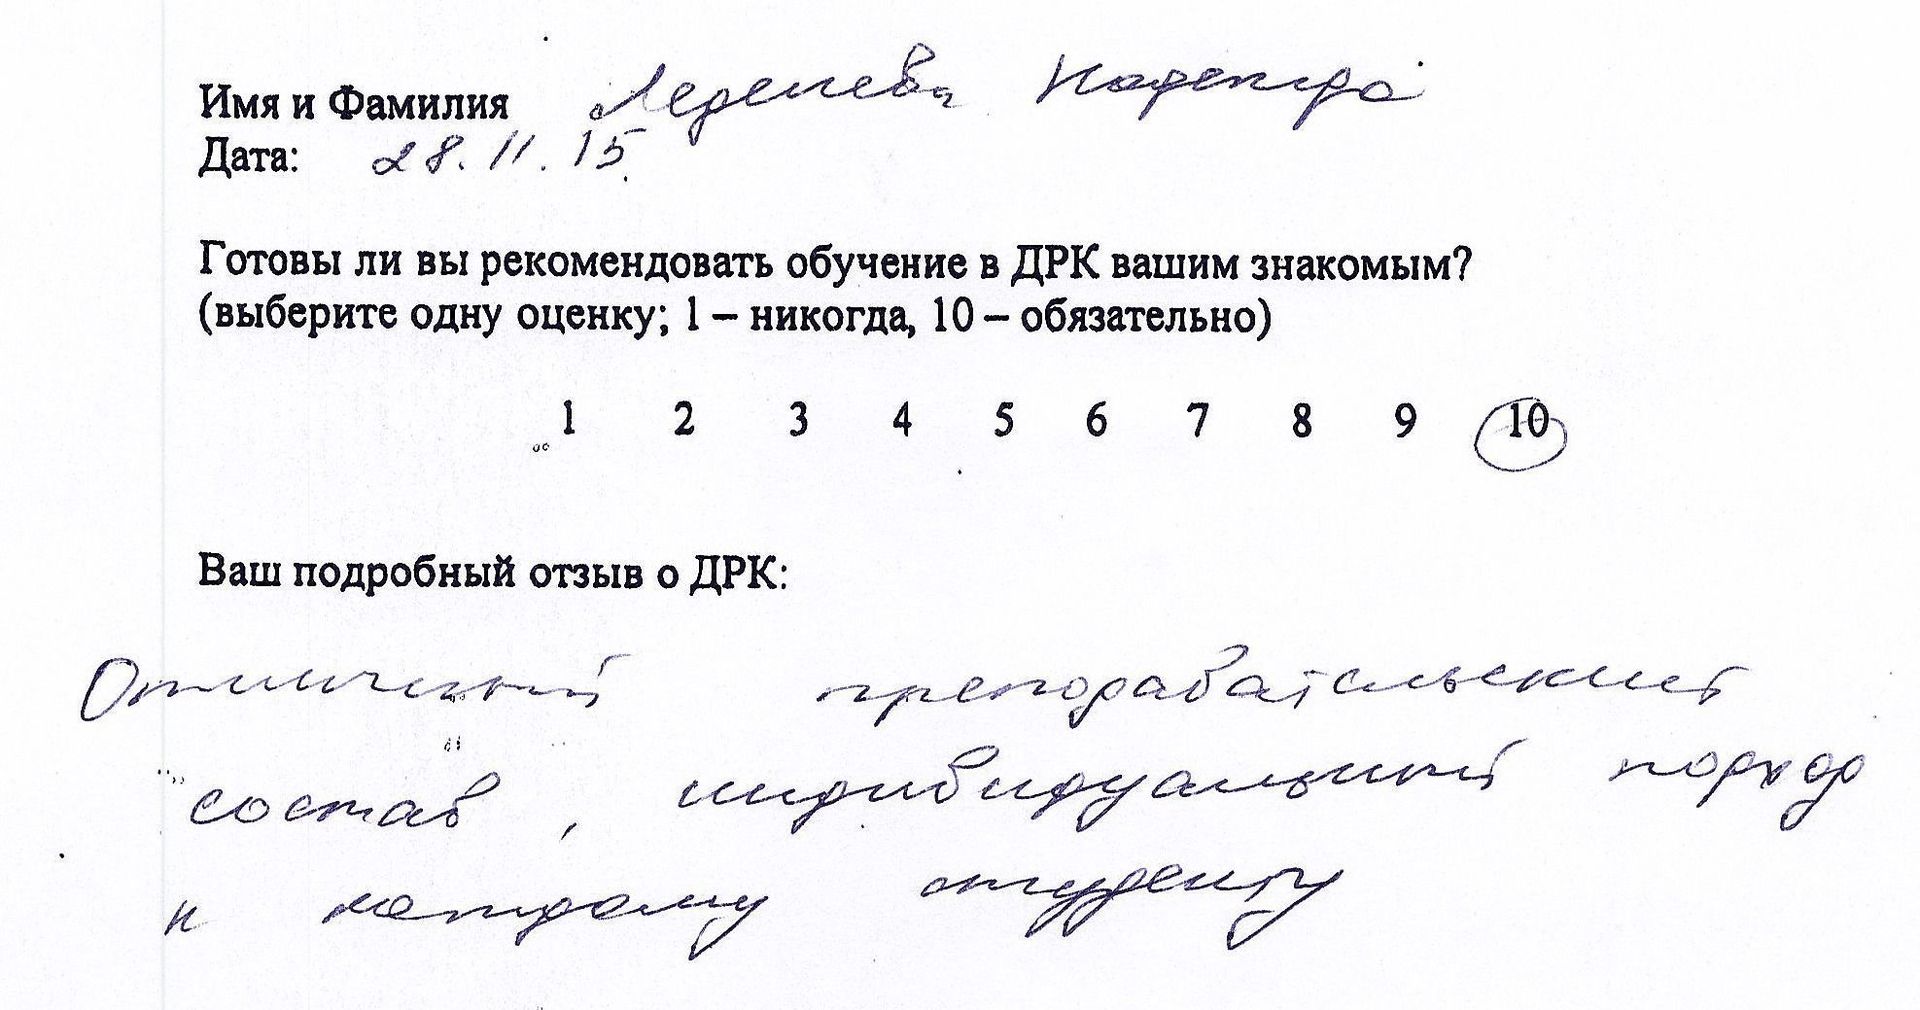 Имя и Фамилия Леденева Надежда
Дата: 28.11.15
Готовы ли вы рекомендовать обучение в ДРК вашим знакомым?
(выберите одну оценку; 1 – никогда, 10 – обязательно)
1 2 3 4 5 6 7 8 9 10
Ваш подробный отзыв о ДРК:
Отличный преподавательский
состав, индивидуальный подход
к каждому студенту